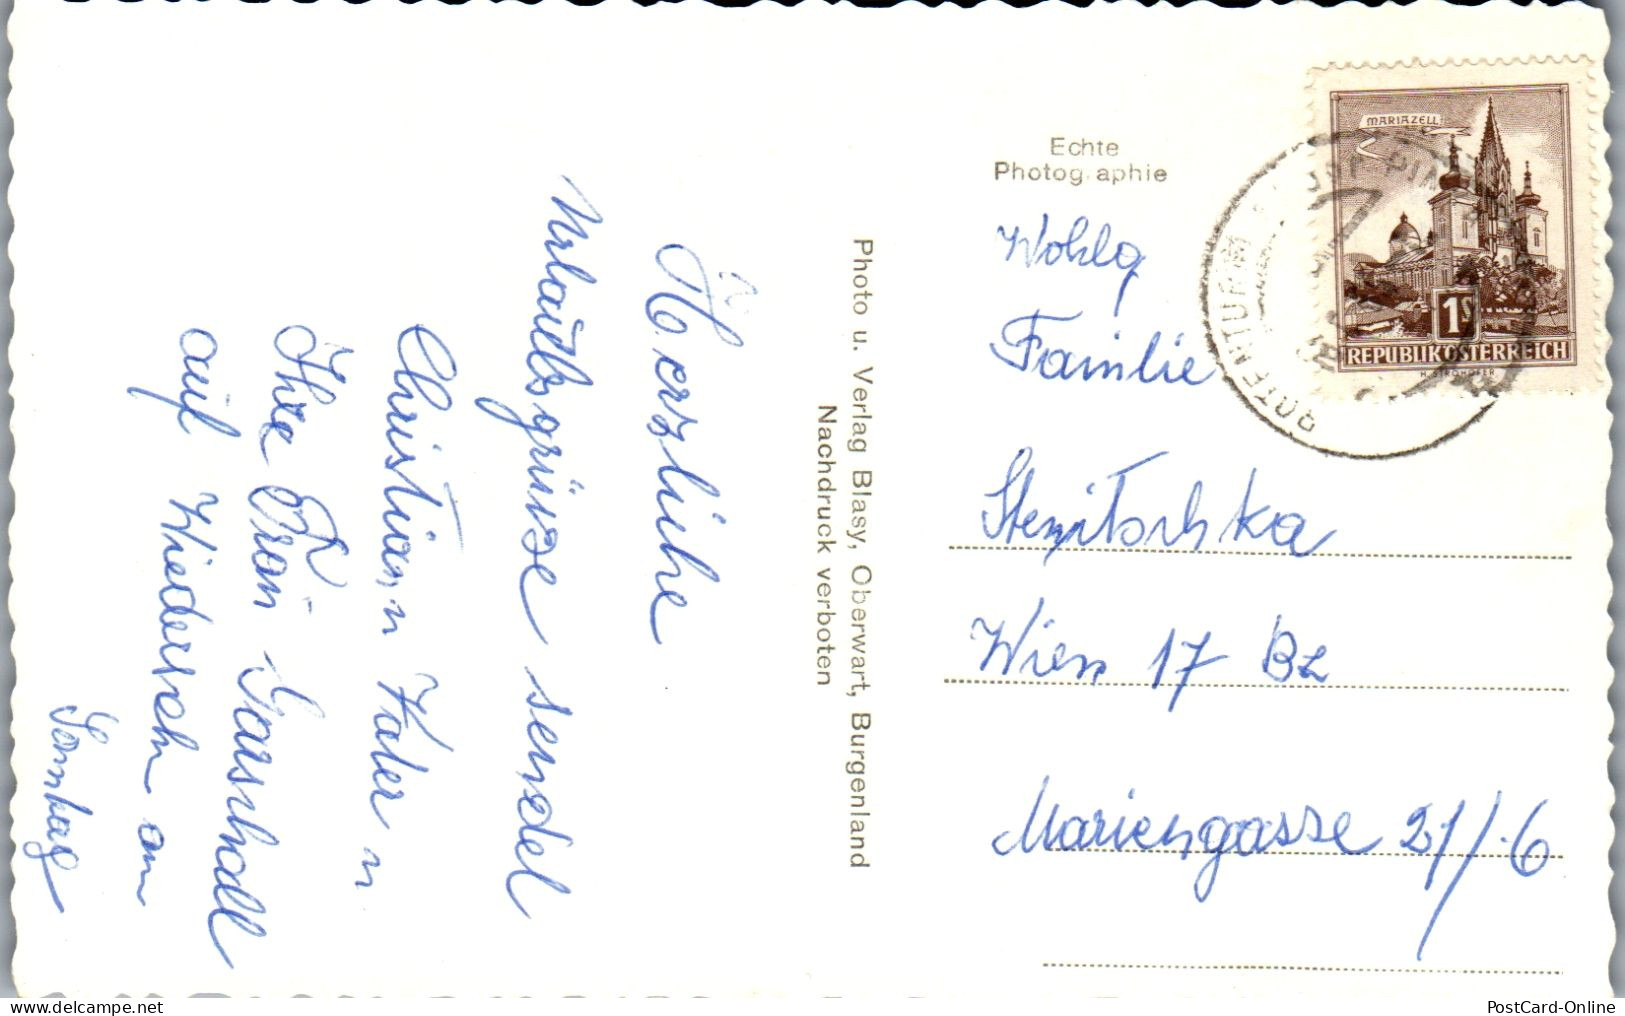 Herzliche
Urlaubsgrüsse sendet
Christian
Ihre Frau
auf Wiedersehn am
Sonntag
Photo u. Verlag Blasy, Oberwart, Burgenland
Nachdruck verboten
Echte
Photographie
Wohlg
Familie
Wien 17 Bz
Mariengasse 21/.6
MARIAZELL
1S
REPUBLIK ÖSTERREICH
H. STROHOFER
ROTENTURM
www.delcampe.net
PostCard-Online